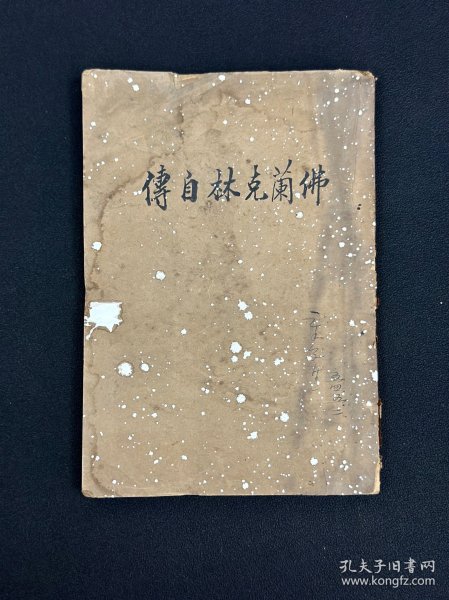 佛蘭克林自傳
孔夫子旧书网
www.kongfz.com